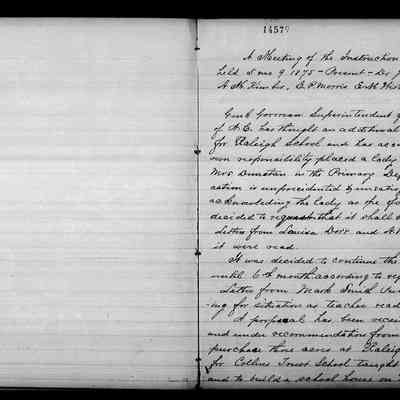 14579
A Meeting of the Instruction
held 5 mo 9 1875 - Present - Dr J
A. M. Kimber, E. P. Morris
Genl Gorman Superintendent
of N.C. has thought an additional
for Raleigh School and has
own responsibility placed a lady
Mrs Dunstan in the Primary Dep
action is unprecedented
acknowledging the lady as
decided to request that it shall
Letters from Louisa Dorr and
it were read.
It was decided to continue the
until 6th month according to
Letter from Mark
-ing for situation as teacher read
A proposal has been recei
and under recommendation from
purchase three acres at Raleigh
for Collins Trust School taught
and to build a school house on